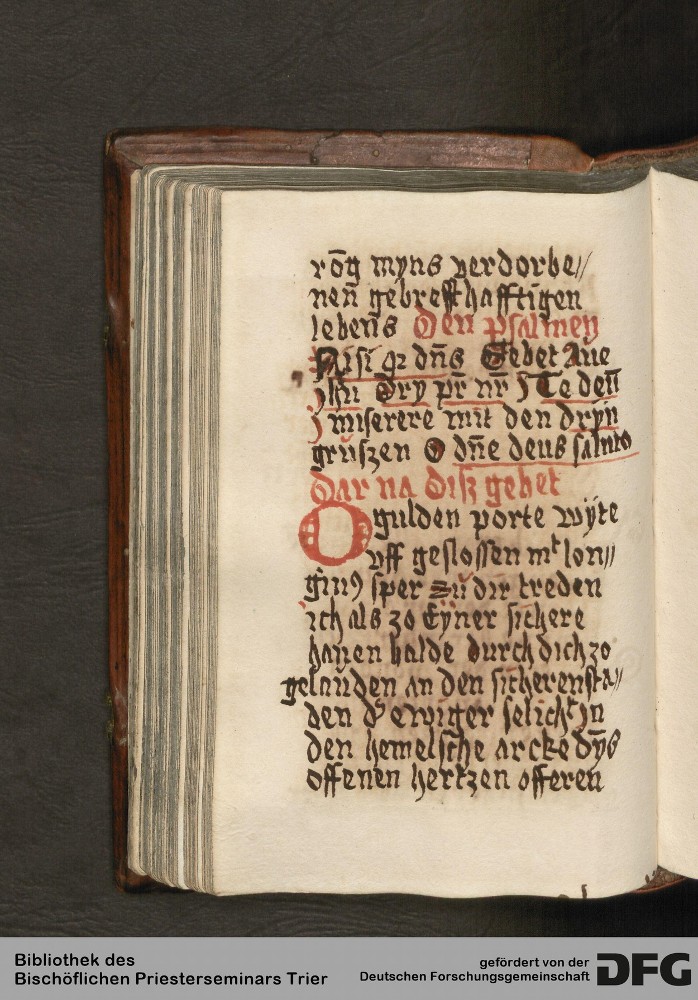 rōg myns verdorbe//
nen̄ gebresthafftigen
lebens Den psalmen
Nisi qz dn̄s Gebet Aue
jhu Dry pr̄ nr̄ j Te den̄
j miserere mit den dryn
gruszen O dn̄e deus
Dar na disz gebet
O gulden porte wÿte
vff geslossen mt lon//
gin9 sper zu dir treden
ich als zo Eyner sichere
hauen balde durch dich zo
gelanden an den sicheren sta//
den dr ewiger selicht jn
den hemelsche arcke dÿs
offenen hertzen offeren
Bibliothek des
Bischöflichen Priesterseminars Trier
gefördert von der
Deutschen Forschungsgemeinschaft DFG